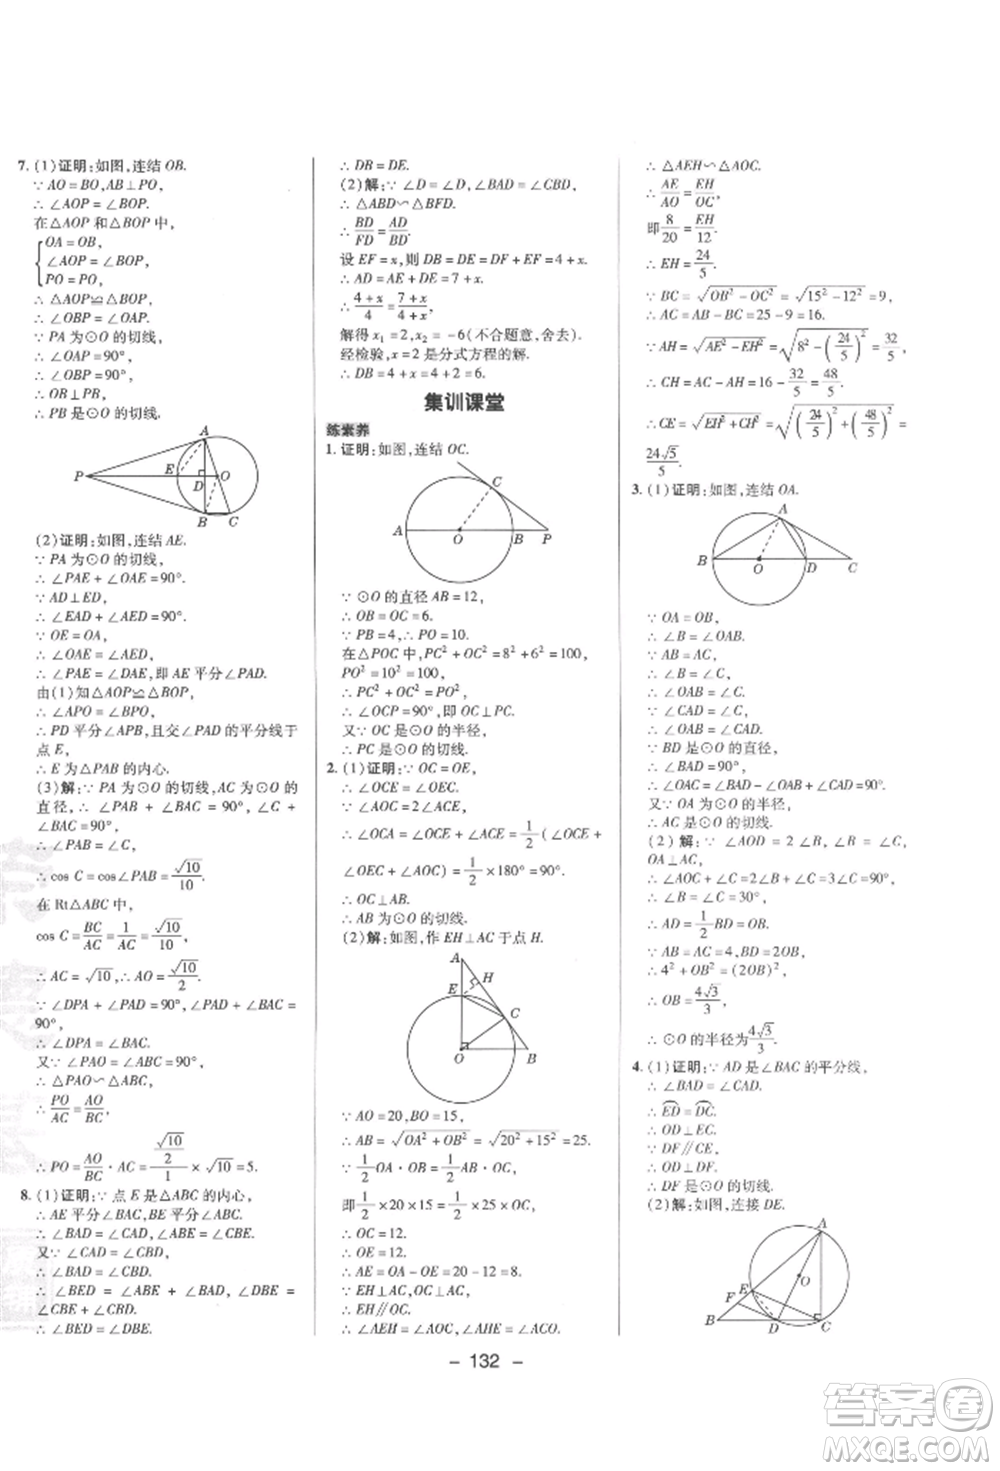 7. (1)证明:如图,连结 OB.
∵ AO = BO,AB⊥PO,
∴ ∠AOP = ∠BOP.
在△AOP 和△BOP 中,
OA = OB,
∠AOP = ∠BOP,
PO = PO,
∴ △AOP≌△BOP,
∴ ∠OBP = ∠OAP.
∵ PA 为⊙O 的切线,
∴ ∠OAP = 90°,
∴ ∠OBP = 90°,
∴ OB⊥PB,
∴ PB 是⊙O 的切线.
A
P
E
D
O
B
C
(2)证明:如图,连结 AE.
∵ PA 为⊙O 的切线,
∴ ∠PAE + ∠OAE = 90°.
∵ AD⊥ED,
∴ ∠EAD + ∠AED = 90°.
∵ OE = OA,
∴ ∠OAE = ∠AED,
∴ ∠PAE = ∠DAE,即 AE 平分∠PAD.
由(1)知△AOP≌△BOP,
∴ ∠APO = ∠BPO,
∴ PD 平分∠APB,且交∠PAD 的平分线于
点 E,
∴ E 为△PAB 的内心.
(3)解:∵ PA 为⊙O 的切线,AC 为⊙O 的
直径,∴ ∠PAB + ∠BAC = 90°, ∠C +
∠BAC = 90°,
∴ ∠PAB = ∠C,
∴ cos C = cos∠PAB = √10/10.
在 Rt△ABC 中,
cos C = BC/AC = 1/AC = √10/10,
∴ AC = √10,∴ AO = √10/2.
∵ ∠DPA + ∠PAD = 90°,∠PAD + ∠BAC =
90°,
∴ ∠DPA = ∠BAC.
又∵ ∠PAO = ∠ABC = 90°,
∴ △PAO∽△ABC,
∴ PO/AC = AO/BC,
∴ PO = AO/BC · AC = (√10/2)/1 × √10 = 5.
8. (1)证明:∵ 点 E 是△ABC 的内心,
∴ AE 平分∠BAC,BE 平分∠ABC,
∴ ∠BAD = ∠CAD,∠ABE = ∠CBE.
又∵ ∠CAD = ∠CBD,
∴ ∠BAD = ∠CBD.
∴ ∠BED = ∠ABE + ∠BAD, ∠DBE =
∠CBE + ∠CBD,
∴ ∠BED = ∠DBE,
∴ DB = DE.
(2)解:∵ ∠D = ∠D,∠DBF = ∠CAD = ∠BAD,
∴ △ABD∽△BFD,
∴ BD/FD = AD/BD.
设 EF = x,则 DB = DE = DF + EF = 4 + x,
∴ AD = AE + DE = 7 + x,
∴ (4 + x)/4 = (7 + x)/(4 + x),
解得 x₁ = 2,x₂ = -6(不合题意,舍去).
经检验,x = 2 是分式方程的解.
∴ DB = 4 + x = 4 + 2 = 6.
集训课堂
练素养
1. 证明:如图,连结 OC.
C
A
O
B
P
∵ ⊙O 的直径 AB = 12,
∴ OB = OC = 6.
∵ PB = 4,∴ PO = 10.
在△POC 中,PC² + OC² = 8² + 6² = 100,
PO² = 10² = 100,
∴ PC² + OC² = PO²,
∴ ∠OCP = 90°,即 OC⊥PC.
又∵ OC 是⊙O 的半径,
∴ PC 是⊙O 的切线.
2. (1)证明:∵ OC = OE,
∴ ∠OCE = ∠OEC.
∵ ∠AOC = 2∠ACE,
∴ ∠OCA = ∠OCE + ∠ACE = 1/2 ( ∠OCE +
∠OEC + ∠AOC) = 1/2 × 180° = 90°,
∴ OC⊥AB,
∴ AB 为⊙O 的切线.
(2)解:如图,作 EH⊥AC 于点 H.
A
H
E
C
O
B
∵ AO = 20,BO = 15,
∴ AB = √(OA² + OB²) = √(20² + 15²) = 25.
∵ 1/2 OA · OB = 1/2 AB · OC,
即 1/2 × 20 × 15 = 1/2 × 25 × OC,
∴ OC = 12,
∴ OE = 12,
∴ AE = OA - OE = 20 - 12 = 8.
∵ EH⊥AC,OC⊥AC,
∴ EH∥OC,
∴ ∠AEH = ∠AOC, ∠AHE = ∠ACO.
∴ △AEH∽△AOC.
∴ AE/AO = EH/OC,
即 8/20 = EH/12,
∴ EH = 24/5.
∵ BC = √(OB² - OC²) = √(15² - 12²) = 9,
∴ AC = AB - BC = 25 - 9 = 16.
∵ AH = √(AE² - EH²) = √(8² - (24/5)²) = 32/5,
∴ CH = AC - AH = 16 - 32/5 = 48/5,
∴ CE = √(EH² + CH²) = √((24/5)² + (48/5)²) =
24√5/5.
3. (1)证明:如图,连结 OA.
A
B
O
D
C
∵ OA = OB,
∴ ∠B = ∠OAB.
∵ AB = AC,
∴ ∠B = ∠C,
∴ ∠OAB = ∠C.
∵ ∠CAD = ∠C,
∴ ∠OAB = ∠CAD.
∵ BD 是⊙O 的直径,
∴ ∠BAD = 90°,
∴ ∠OAC = ∠BAD - ∠OAB + ∠CAD = 90°.
又∵ OA 为⊙O 的半径,
∴ AC 是⊙O 的切线.
(2) 解: ∵ ∠AOD = 2 ∠B, AB = AC,
OA⊥AC,
∴ ∠AOC + ∠C = 2∠C + ∠C = 3∠C = 90°,
∴ ∠B = ∠C = 30°,
∴ AD = 1/2 BD = OB.
∵ AB = AC = 4,BD = 2OB,
∴ 4² + OB² = (2OB)²,
∴ OB = 4√3/3,
∴ ⊙O 的半径为4√3/3.
4. (1)证明:∵ AD 是∠BAC 的平分线,
∴ ∠BAD = ∠CAD.
∴ ED = DC.
∴ OD⊥EC.
∵ DF∥CE,
∴ OD⊥DF.
∴ DF 是⊙O 的切线.
(2)解:如图,连接 DE.
A
O
E
F
B
D
C
- 132 -
答案圈
MXQE.COM